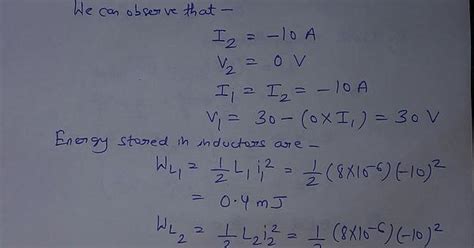 We can observe that —
I₂ = -10 A
V₂ = 0 V
I₁ = I₂ = -10A
V₁ = 30 - (0 × I₁) = 30 V
Energy stored in inductors are —
W_L₁ = 1/2 L₁ i₁² = 1/2 (8×10⁻⁶)(-10)²
= 0.4 mJ
W_L₂ = 1/2 L₂ i₂² = 1/2 (8×10⁻⁶)(-10)²